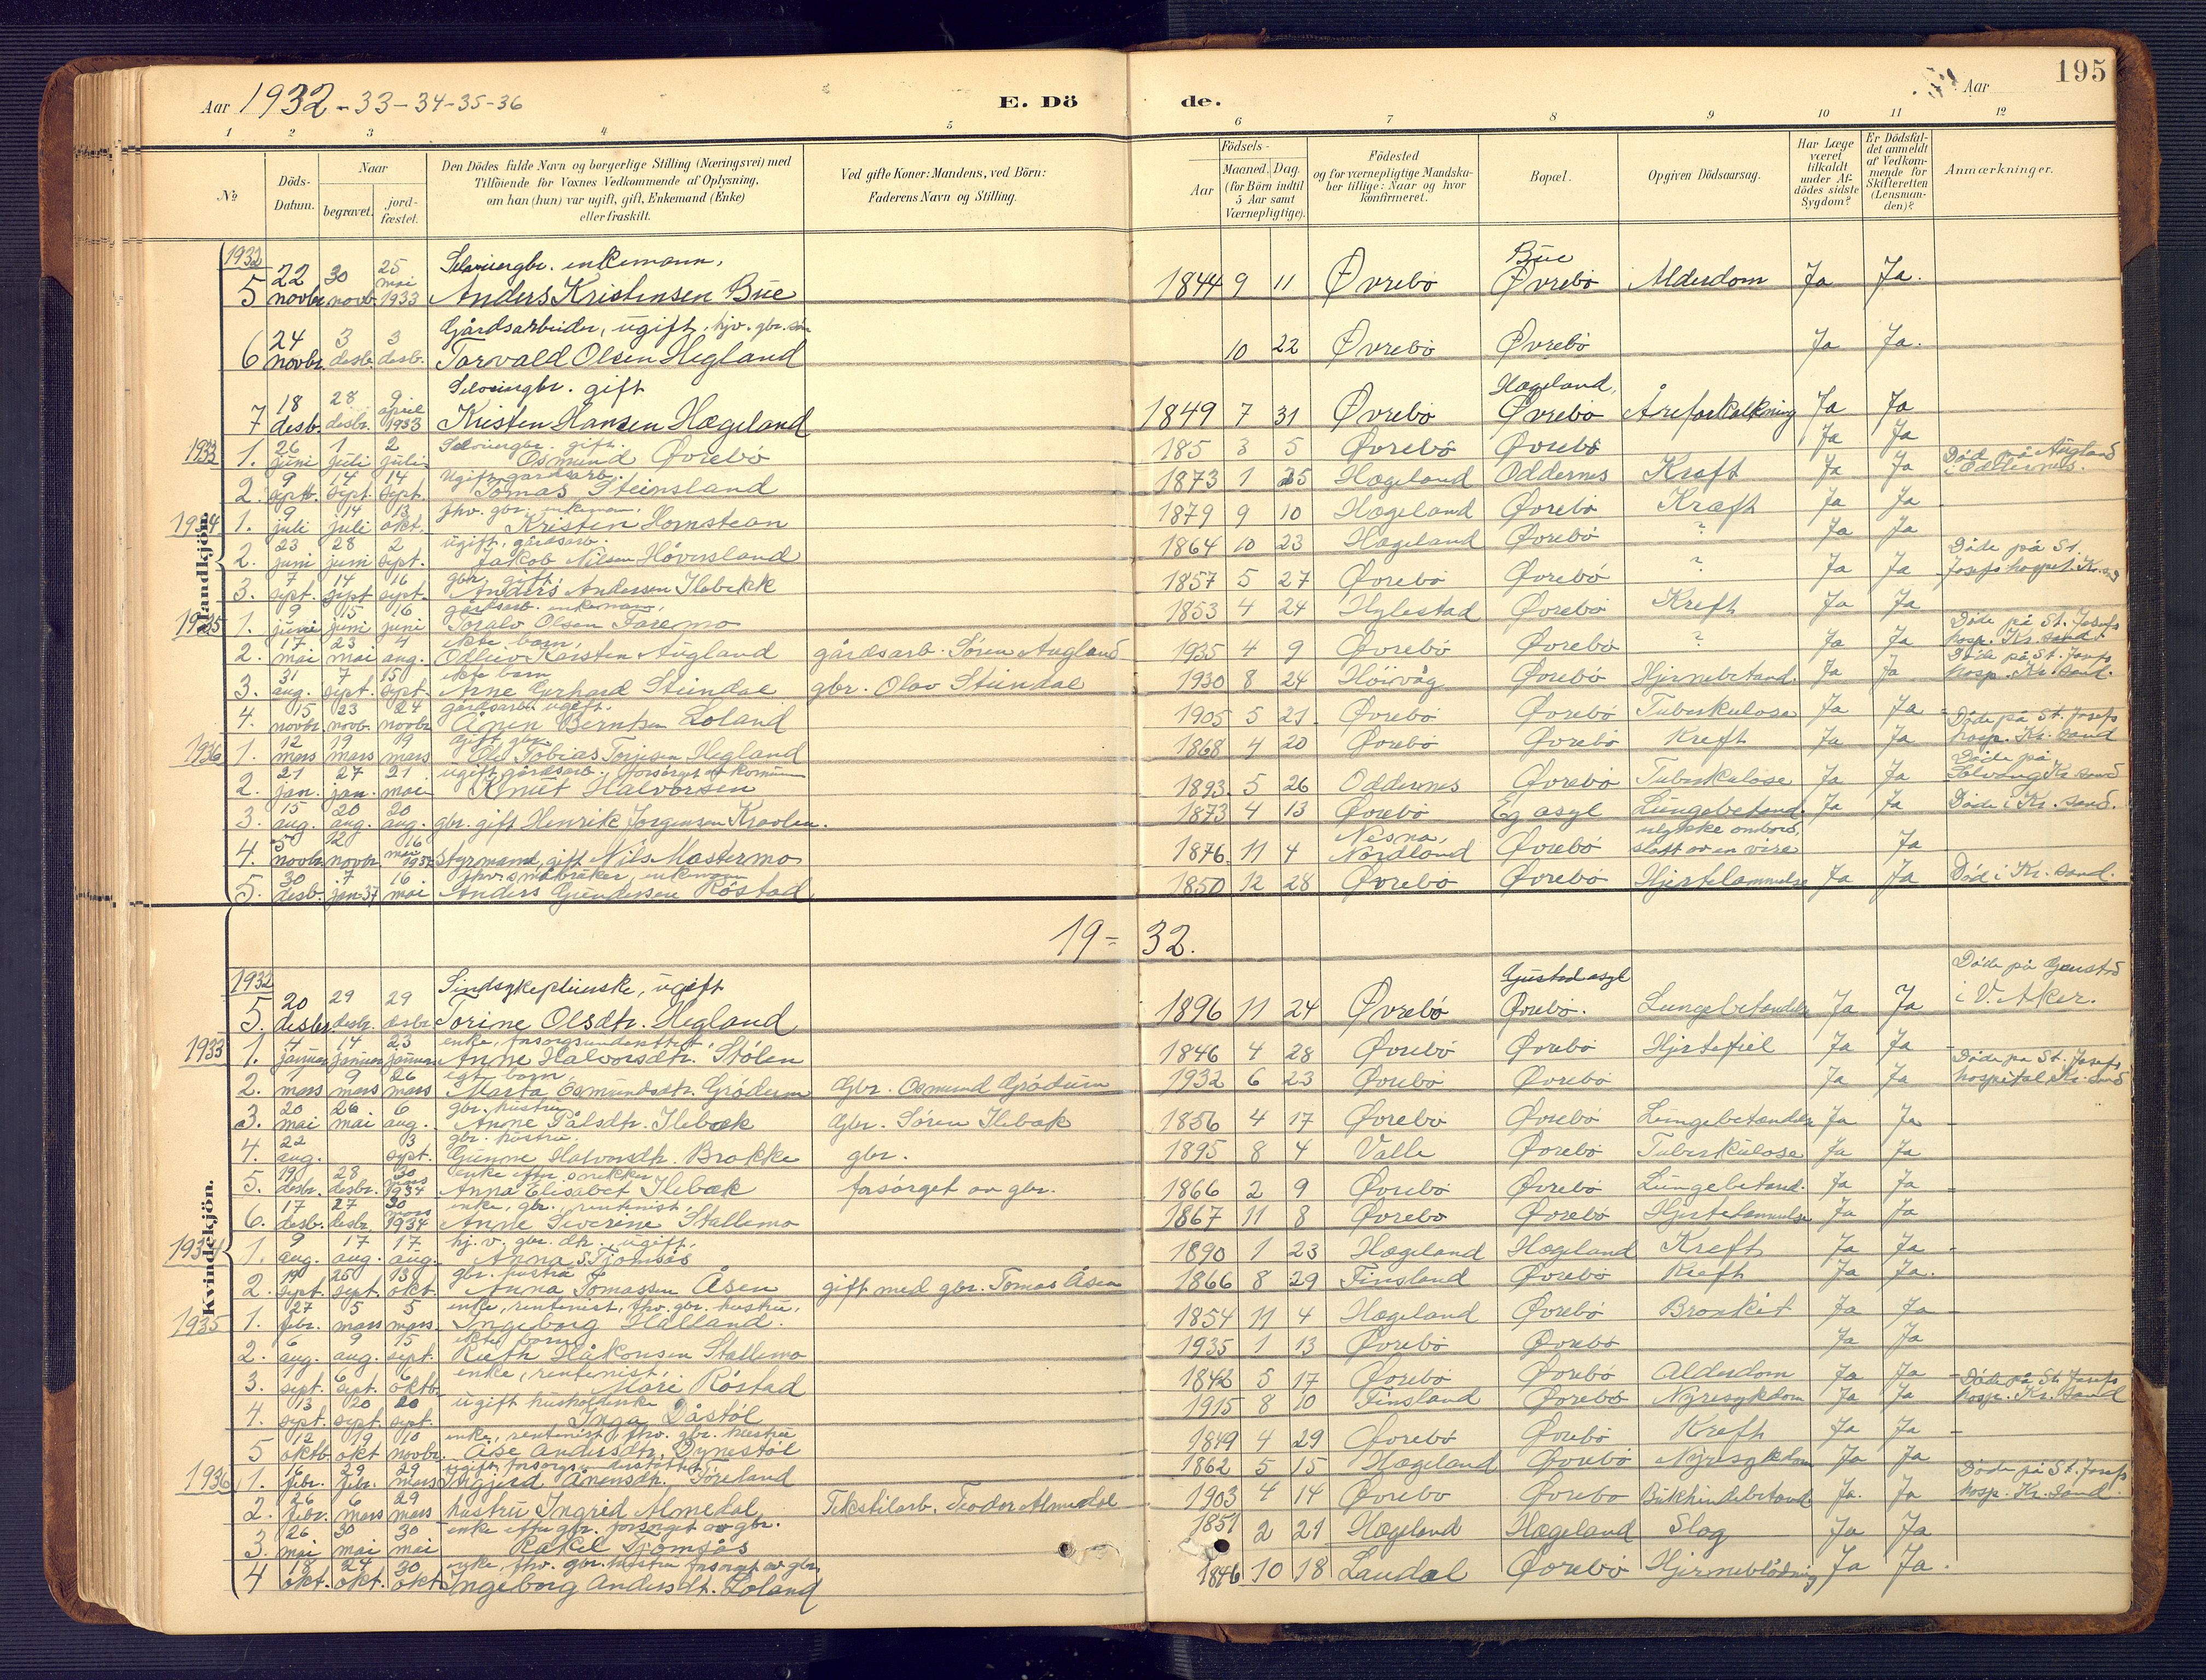 195
Aar 1932-33-34-35-36 E. Dö de. Aar
1 2 3 4 5 6 7 8 9 10 11 12
No
Döds-Datum.
Naar
begravet.
jord-fæstet.
Den Dödes fulde Navn og borgerlige Stilling (Næringsvei) med
Tilföiende for Voxnes Vedkommende af Oplysning,
om han (hun) var ugift, gift, Enkemand (Enke)
eller fraskilt.
Ved gifte Koner: Mandens, ved Börn:
Faderens Navn og Stilling.
Födsels-
Aar
Maaned. Dag.
(for Börn indtil
5 Aar samt
Værnepligtige).
Födested
og for værnepligtige Mandska-
ber tillige: Naar og hvor
konfirmeret.
Bopæl.
Opgiven Dödsaarsag.
Har Læge
været
tilkaldt
under Af-
dödes sidste
Sygdom?
Er Dödsfal-
det anmeldt
af Vedkom-
mende for
Skifteretten
(Lensman-
den)?
Anmærkninger.
Mandkjön.
1932 5 22 novbr. 30 novb. 25 mai 1933 Selveiergbr. enkemann, Anders Kristensen Bue 1844 9 11 Øvrebö Bue Øvrebö Alderdom Ja Ja.
6 24 novbr. 3 desb. 3 desb. Gårdsarbeider, ugift, hjv. gbr. sön Torvald Olsen Hegland 10 22 Øvrebö Øvrebö Ja Ja.
7 18 desb. 28 desbr. 9 april 1933 Selveiergbr. gift Kristen Hansen Hægeland 1849 7 31 Øvrebö Hægeland, Øvrebö Åreforkalkning Ja Ja
1933 1. 26 juni 1 juli 2 juli Selveiergbr. gift. Osmund Øvrebö 185 3 5 Øvrebö Øvrebö Ja Ja
2. 9 septb. 14 sept. 14 sept. Ugift gårdsarb. Tomas Steinsland 1873 1 25 Hægeland Oddernes Kreft Ja Ja Död på Augland i Oddernes.
1934 1. 9 juli 14 juli 13 okt. fhv. gbr. enkeman. Kristen Homstean 1879 9 10 Hægeland Øvrebö Kræft Ja Ja
2. 23 juni 28 juni 2 sept. ugift, gårdsarb. Jakob Nilsen Hövesland 1864 10 23 Hægeland Øvrebö ? Ja Ja
3. 7 sept. 14 sept. 16 sept. gbr. gift Anders Andersen Ilebekk 1857 5 27 Øvrebö Øvrebö ? Ja Ja Döde på St. Josefs hospit. Kr.sand
1935 1. 9 juni 15 juni 16 juni gårdsarb. enkemann, Toralv Olsen Faremo 1853 4 24 Hylestad Øvrebö Kreft Ja Ja
2. 17 mai 23 mai 4 aug. ekte barn, Odleiv Karsten Augland gårdsarb. Sören Augland 1935 4 9 Øvrebö Øvrebö ? Ja Ja Döde på St. Josefs hosp. Kr.sand.
3. 31 aug. 7 sept. 15 sept. ekte barn Arne Gerhard Steindal gbr. Olav Steindal 1930 8 24 Höivåg Øvrebö Hjernebetand. Ja Ja Döde på St. Josefs hosp. Kr.sand.
4. 15 novbr. 23 novb. 24 novbr. gårdsarb. ugift. Ånen Berntsen Loland 1905 5 21 Øvrebö Øvrebö Tuberkulose Ja Ja
1936 1. 12 mars 19 mars 19 mars Gift gbr. Ole Tobias Torjesen Hegland 1868 4 20 Øvrebö Øvrebö Kreft Ja Ja Döde på St. Josefs hosp. Kr.sand
2. 21 jan. 27 jan. 21 mai ugift gårdsarb. forsörget av komunen Knut Halvorsen 1893 5 26 Oddernes Øvrebö Tuberkulose Ja Ja Döde på Solvang Kr.sand
3. 15 aug. 20 aug. 20 aug. gbr. gift Henrik Jörgensen Kravlen. 1873 4 13 Øvrebö Eg asyl Lungebetend. Ja Ja Döde i Kr.sand.
4. 5 novbr. 12 novbr. 16 mai 1937 Styrmand, gift Nils Mastermo 1876 11 4 Nesna, Nordland Øvrebö ulykke ombord, slått av en vire Ja
5. 30 desb. 7 jan. 37 16 mai fhv. småbruker, enkemann Anders Gundersen Röstad 1850 12 28 Øvrebö Øvrebö Hjertelammelse Ja Ja Död i Kr.sand.
19 - 32.
Kvindekjön.
1932 5. 20 desbr. 29 desbr. 29 desbr. Sindsykepleierske, ugift Torine Olsdtr. Hegland 1896 11 24 Øvrebö Gaustad asyl Øvrebö. Lungebetendelse Ja Ja Döde på Gaustad i V. Aker.
1933 1. 4 januar 14 januar 23 januar enke, forsorgsunderstöttet, Anne Halvorsdtr. Stölen 1846 4 28 Øvrebö Øvrebö Hjertefeil Ja Ja
2. mars 9 mars 26 mars egt. barn. Marta Osmundsdtr. Grödum Gbr. Osmund Grödum 1932 6 23 Øvrebö Øvrebö Ja Ja Döde på St. Josefs hospital, Kr.sand
3. 20 mai 26 mai 6 aug. gbr. hustru Anne Pålsdtr. Ilebæk Gbr. Sören Ilebæk 1856 4 17 Øvrebö Øvrebö Lungebetendelse Ja Ja
4. 22 aug. 3 sept. gbr. hustru. Gunne Halvorsdtr. Brokke gbr. 1895 8 4 Valle Øvrebö Tuberkulose Ja Ja
5. 19 desbr. 28 desbr. 30 mars 1934 enke efter snekker Anna Elisabet Ilebæk forsörget av gbr. 1866 2 9 Øvrebö Øvrebö Lungebetend. Ja Ja
6. 17 desb. 27 desbr. 30 mars 1934 enke, gbr. rentenist, Anne Severine Stallemo 1867 11 8 Øvrebö Øvrebö Hjertelammelse Ja Ja
1934 1. 9 aug. 17 aug. 17 aug. hj. v. gbr. dtr. ugift. Anna S. Tjomsås 1890 1 23 Hægeland Hægeland Kreft Ja Ja
2. 19 sept. 25 sept. 13 okt. gbr. hustru Anna Tomassen Åsen gift med gbr. Tomas Åsen 1866 8 29 Finsland Øvrebö Kreft Ja Ja.
1935 1. 27 febr. 5 mars 5 mars. enke, rentenist, fhv. gbr. hustru, Ingeborg Halland. 1854 11 4 Hægeland Øvrebö Bronkit Ja Ja
2. 6 aug. 9 aug. 15 sept. ekte barn Ruth Håkonsen Stallemo 1935 1 13 Øvrebö Øvrebö Ja Ja
3. sept. 6 sept. 6 oktb. enke, rentenist, Mari Röstad 1842 5 17 Øvrebö Øvrebö Alderdom Ja Ja
4. 13 sept. 20 sept. 20 sept. ugift husholderske Inga Dåstöl 1915 8 10 Finsland Øvrebö Nyresykdom Ja Ja Döde på St. Josefs hosp. Kr.sand
5 12 oktb 19 okt 10 novbr. enke, rentenist, fhv. gbr. hustru Åse Andersdtr. Dynestöl 1849 4 29 Øvrebö Øvrebö Kreft Ja Ja
1936 1. febr. 29 febr. 29 mars ugift, forsorgsunderstöttet Ingjerd Ånensdtr. Föreland 1862 5 15 Hægeland Øvrebö Nyresykdom Ja Ja
2. 26 febr. 6 mars 29 mars hustru Ingrid Almedal Tekstilarb. Teodor Almedal 1903 4 14 Øvrebö Øvrebö Bukhindebetend. Ja. Ja Döde på St. Josefs hosp. Kr.sand.
3. 26 mai 30 mai 30 mai enke efter gbr. forsörget av gbr. Rakel Tjomsås 1851 2 21 Hægeland Hægeland Slag Ja Ja
4 18 okt. 24 okt. 30 okt. enke, fhv. gbr. hustru forsörget av gbr. Ingeborg Andersdt. Loland 1846 10 18 Laudal Øvrebö Hjerneblödning Ja Ja.